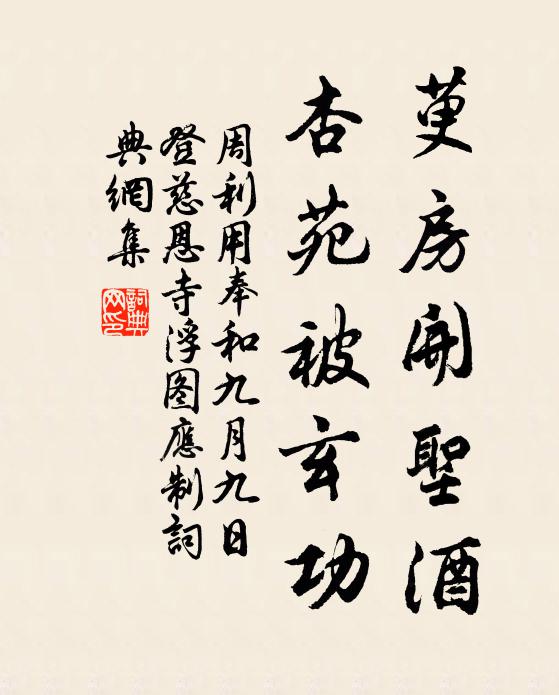 萸房開聖酒
杏苑被玄功
周利用奉和九月九日
登慈恩寺浮图應制詞
典網集
詞典網印